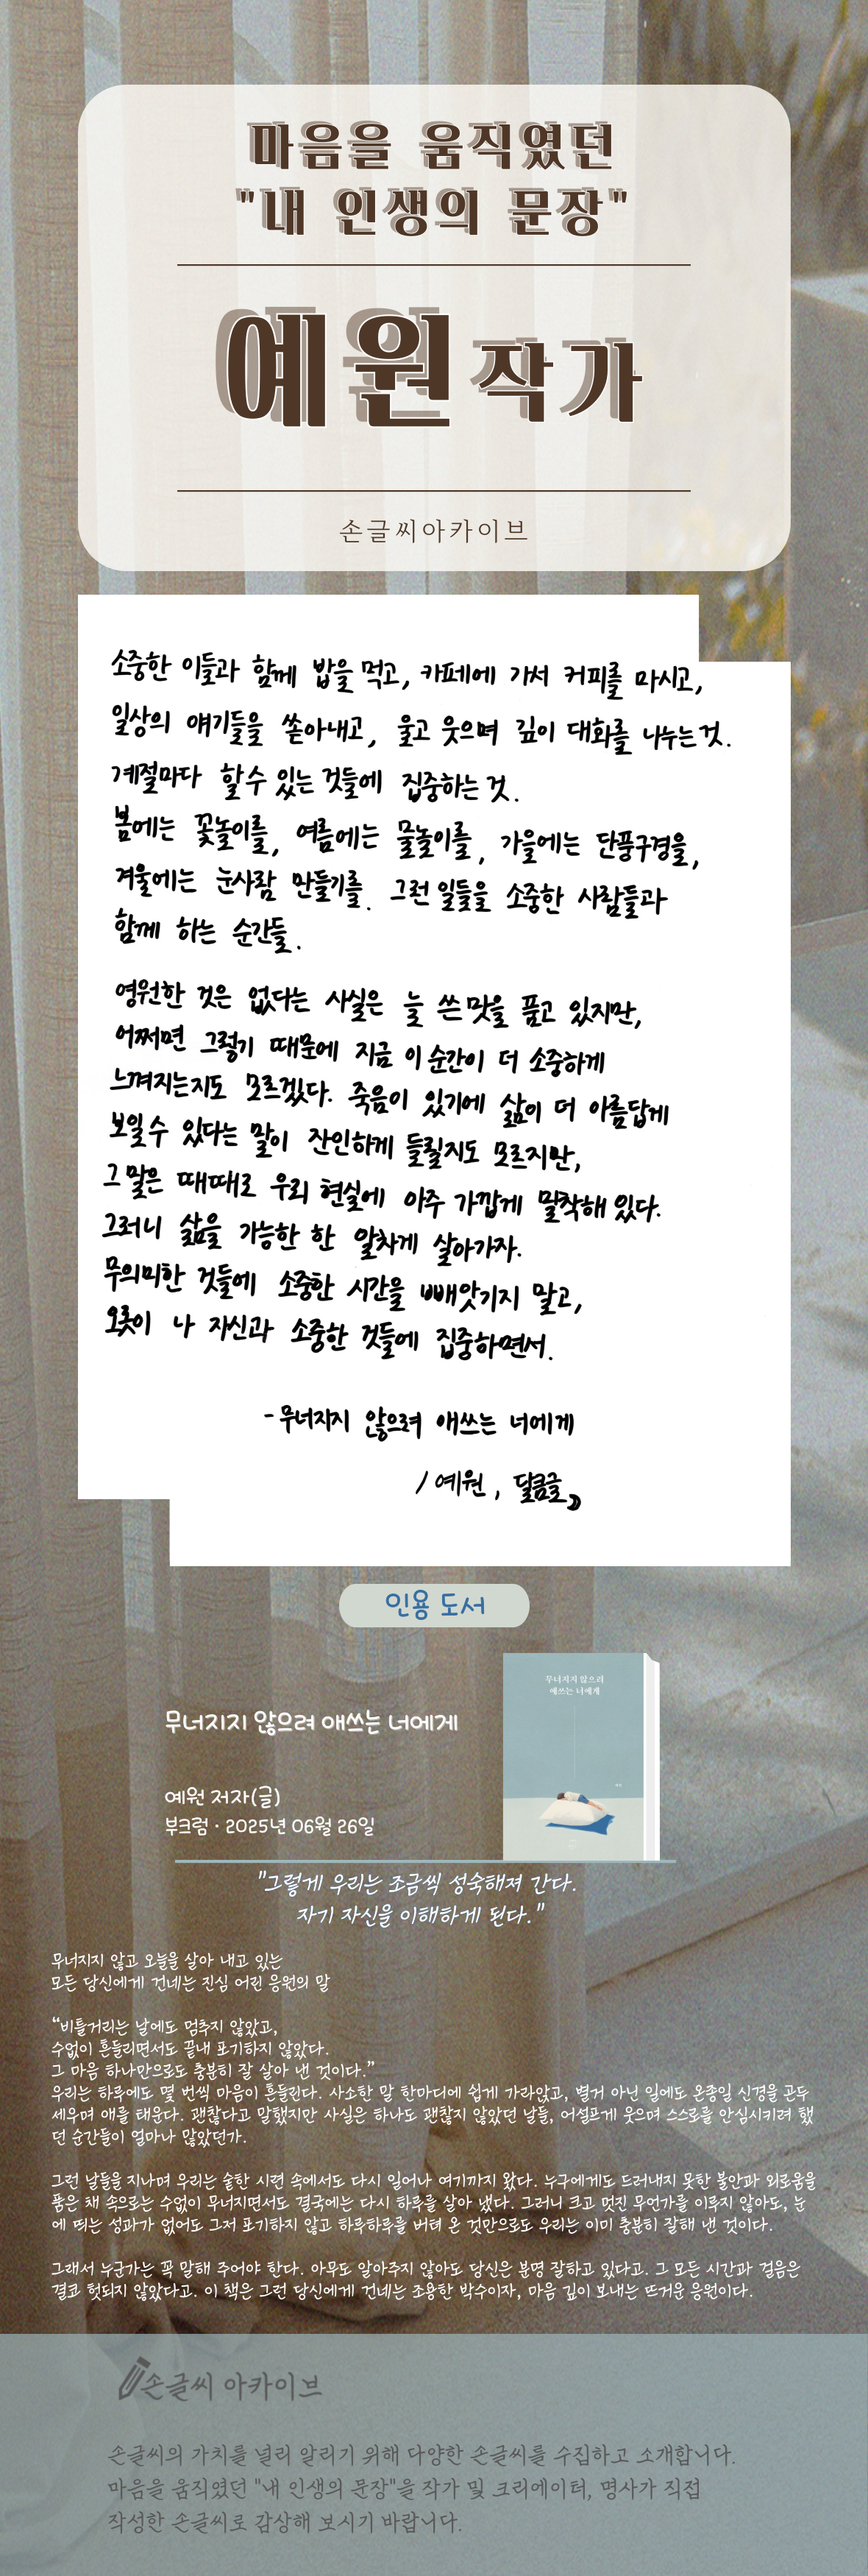 마음을 움직였던
"내 인생의 문장"
예원 작가
손글씨아카이브
소중한 이들과 함께 밥을 먹고, 카페에 가서 커피를 마시고,
일상의 얘기들을 쏟아내고, 울고 웃으며 깊이 대화를 나누는 것.
계절마다 할 수 있는 것들에 집중하는 것.
봄에는 꽃놀이를, 여름에는 물놀이를, 가을에는 단풍구경을,
겨울에는 눈사람 만들기를. 그런 일들을 소중한 사람들과
함께 하는 순간들.
영원한 것은 없다는 사실은 늘 쓴 맛을 품고 있지만,
어쩌면 그렇기 때문에 지금 이 순간이 더 소중하게
느껴지는지도 모르겠다. 죽음이 있기에 삶이 더 아름답게
보일 수 있다는 말이 잔인하게 들릴지도 모르지만,
그 말은 때때로 우리 현실에 아주 가깝게 밀착해 있다.
그러니 삶을 가능한 한 알차게 살아가자.
무의미한 것들에 소중한 시간을 빼앗기지 말고,
오롯이 나 자신과 소중한 것들에 집중하면서.
- 무너지지 않으려 애쓰는 너에게
/ 예원, 달콤글
인용 도서
무너지지 않으려
애쓰는 너에게
무너지지 않으려 애쓰는 너에게
예원 저자(글)
부크럼 · 2025년 06월 26일
"그렇게 우리는 조금씩 성숙해져 간다.
자기 자신을 이해하게 된다."
무너지지 않고 오늘을 살아 내고 있는
모든 당신에게 건네는 진심 어린 응원의 말
“비틀거리는 날에도 멈추지 않았고,
수없이 흔들리면서도 끝내 포기하지 않았다.
그 마음 하나만으로도 충분히 잘 살아 낸 것이다.”
우리는 하루에도 몇 번씩 마음이 흔들린다. 사소한 말 한마디에 쉽게 가라앉고, 별거 아닌 일에도 온종일 신경을 곤두
세우며 애를 태운다. 괜찮다고 말했지만 사실은 하나도 괜찮지 않았던 날들, 어설프게 웃으며 스스로를 안심시키려 했
던 순간들이 얼마나 많았던가.
그런 날들을 지나며 우리는 숱한 시련 속에서도 다시 일어나 여기까지 왔다. 누구에게도 드러내지 못한 불안과 외로움을
품은 채 속으로는 수없이 무너지면서도 결국에는 다시 하루를 살아 냈다. 그러니 크고 멋진 무언가를 이루지 않아도, 눈
에 띄는 성과가 없어도 그저 포기하지 않고 하루하루를 버텨 온 것만으로도 우리는 이미 충분히 잘해 낸 것이다.
그래서 누군가는 꼭 말해 주어야 한다. 아무도 알아주지 않아도 당신은 분명 잘하고 있다고. 그 모든 시간과 걸음은
결코 헛되지 않았다고. 이 책은 그런 당신에게 건네는 조용한 박수이자, 마음 깊이 보내는 뜨거운 응원이다.
손글씨 아카이브
손글씨의 가치를 널리 알리기 위해 다양한 손글씨를 수집하고 소개합니다.
마음을 움직였던 "내 인생의 문장"을 작가 및 크리에이터, 명사가 직접
작성한 손글씨로 감상해 보시기 바랍니다.